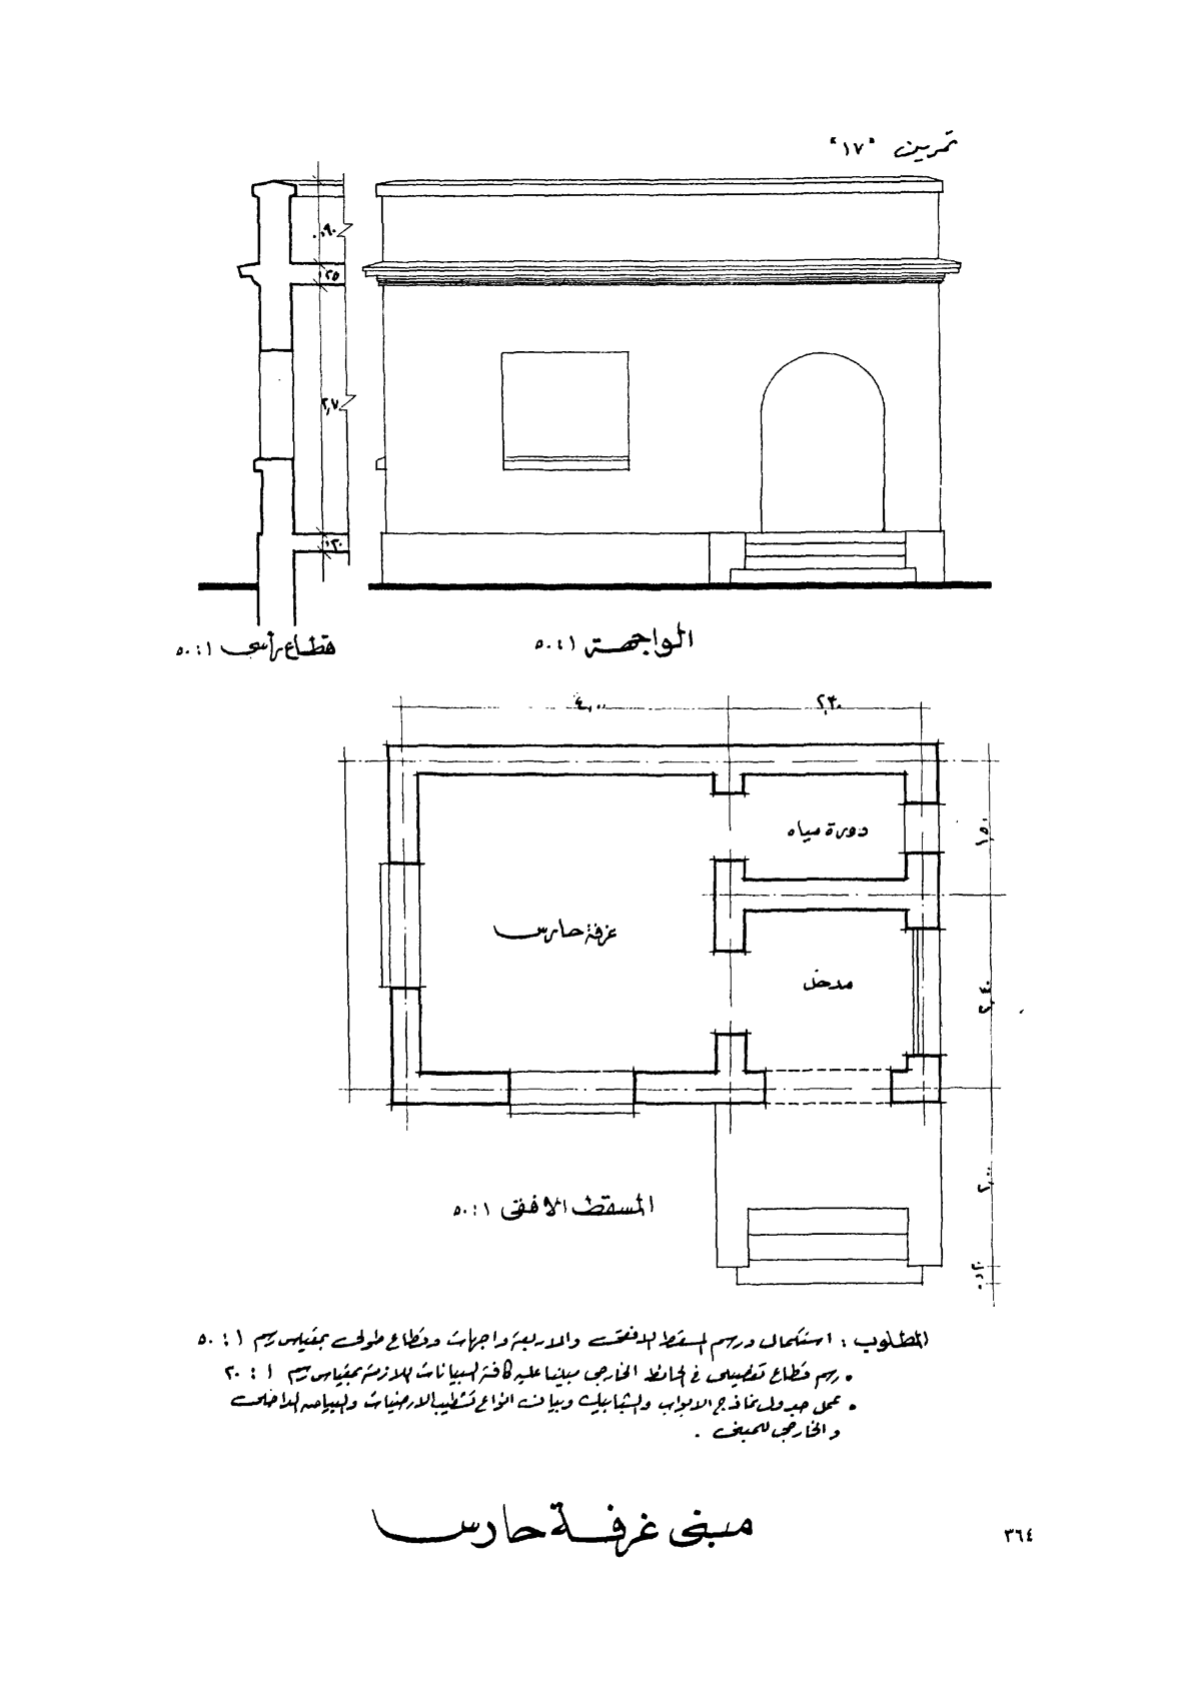 تمرين "١٧"
٠,٩٠
٠,٢٥
٢,٧٠
٠,٢٠
الواجهة ١ : ٥٠
قطاع رأسى ١ : ٥٠
٤,٠٠
٢,٣٠
دورة مياه
١,٥٠
غرفة حارس
مدخل
٢,٣٠
المسقط الافقى ١ : ٥٠
٢,٠٠
٠,٢٠
المطلوب : استكمال ورسم المسقط الافقى والاربعة واجهات وقطاع طولى بمقياس رسم ١ : ٥٠
• رسم قطاع تفصيلى فى الحائط الخارجى مبينا عليه كافة البيانات اللازمة بمقياس رسم ١ : ٢٠
• عمل جدول نماذج الابواب والشبابيك وبيان انواع تشطيب الارضيات والبياض الداخلى
والخارجى للمبنى .
مبنى غرفة حارس
٣٦٤